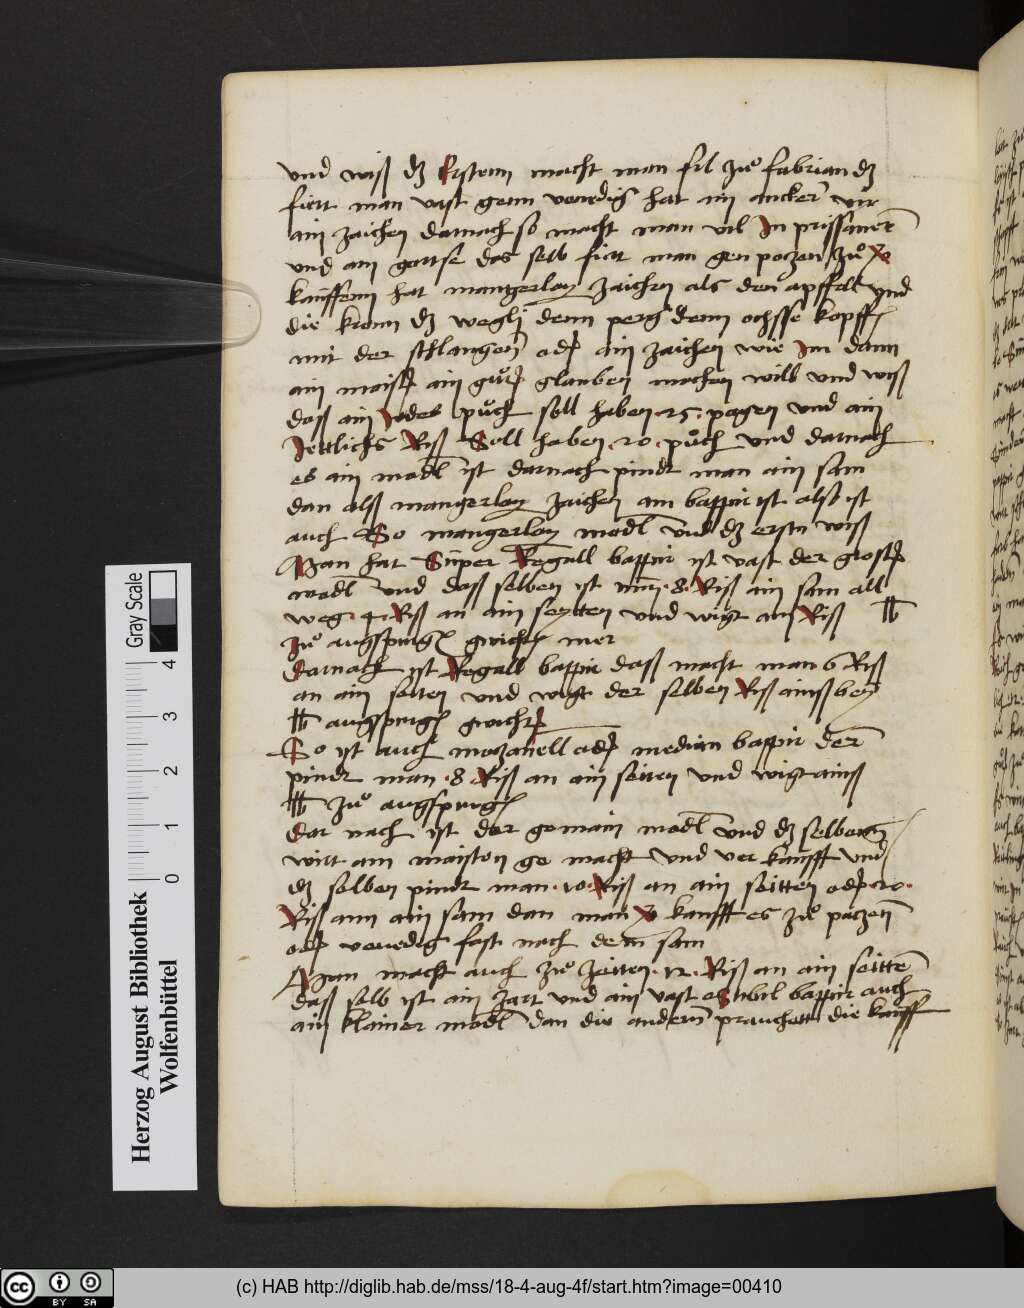 und wiß dz Erstenn macht man fil zuͦ fabrian dz
fiert man vast genn venedig hat ain ancker vir
ain zaichen darnach so macht man vil In prissäner
und am gartse das selb fiert man gen poczen zuͦ ver
kauffenn hat mangerlay zaichen als den apffel vnd
die kronn dz wegli denn perg denn ochsse kopff
mit der schlangen oder ain zaichen wie Im dann
ain maister ain guͦter glauben machen will vnd wiß
daß ain Jedes puͦch soll haben 25 pogen vnd ain
Jettlichs Riß Soll haben 20 puͦch vnd darnach
es ain modl ist darnach pindt man ain sam
dan alß mangerlay zaichen am bappir ist also ist
auch So mangerlay modl vnd dz erstn wiß
Man hat Super Regall bappir ist vast der grost
modl vnd daß selben ist 8 Riß ain sam all
weg 4 Riß an ain seytten vnd wigt ain Riß
zuͦ augspurg gwicht mer
Darnach ist Regall bappir daß macht man 6 Riß
an ain seiten vnd wigt der selben Riß ainß bey
augspurg gwicht
So ist auch mezanell oder median bappir der
pindt man 8 Riß an ain seiten vnd wigt ainß
zuͦ augspurg
Dar nach ist der gemain modl vnd dz selbenn
wirt am maisten ge macht vnd ver kaufft vnd
dz selben pindt man 10 Riß an ain seitten oder 20
Riß ann ain sam dan man ver kaufft es zuͦ poczen
oder venedig fast nach dem sam
Man macht auch zuͦ zeitten 12 Riß an ain seitten
daß selb ist ain zart vnd ain vast bappir auch
ain klainer modl dan die andern prauchett die kauff
Herzog August Bibliothek
Wolfenbüttel
Gray Scale
0 1 2 3 4
cc BY SA
(c) HAB http://diglib.hab.de/mss/18-4-aug-4f/start.htm?image=00410